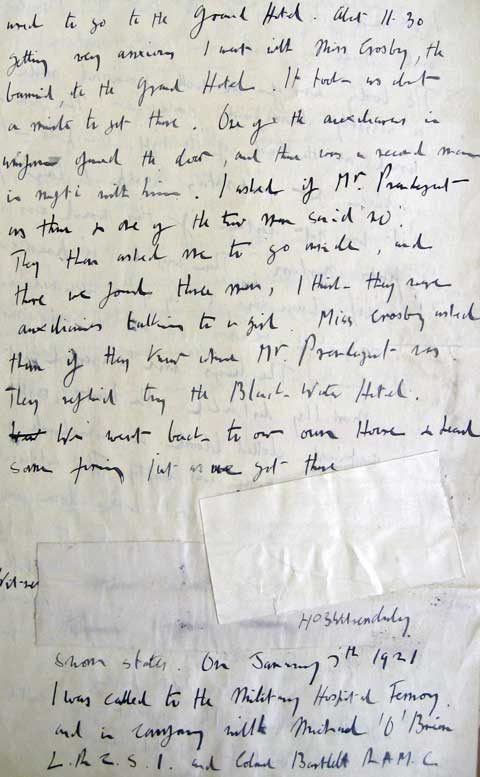 used to go to the Grand Hotel. Abt 11-30
getting very anxious I went with Miss Crosby, the
barmaid, to the Grand Hotel. It took us abt
a minute to get there. One of the auxiliaries in
uniform opened the door, and there was a second man
in mufti with him. I asked if Mr. Prendergast
was there & one of the two men said 'no'.
They then asked me to go inside, and
there we found three men, I think they were
auxiliaries talking to a girl. Miss Crosby asked
them if they knew where Mr. Prendergast was.
They replied try the Black-Water Hotel.
We went back to our own House & heard
some firing just as we got there
Sworn states. On January 7th 1921
I was called to the Military Hospital Fermoy.
and in company with Michael 'O' Brien
L.R.C.S.I. and Colonel Bartlett R.A.M.C